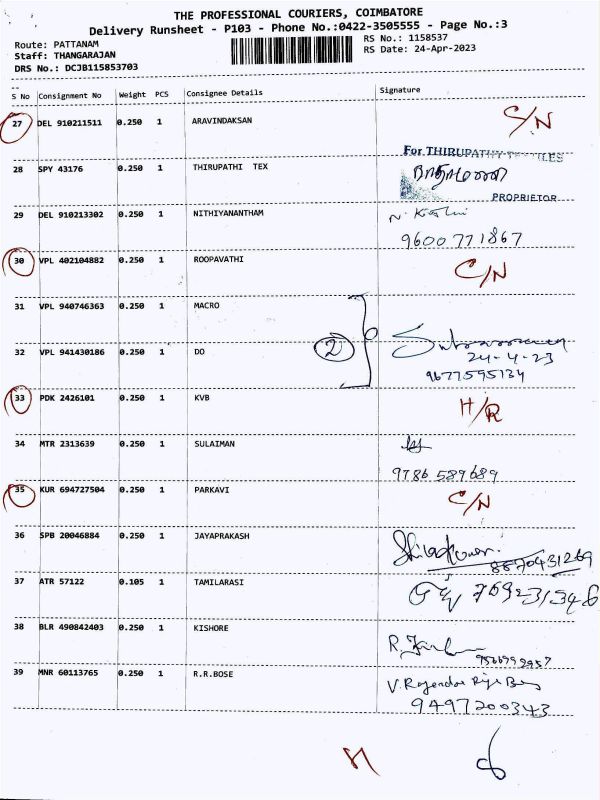 THE PROFESSIONAL COURIERS, COIMBATORE
Delivery Runsheet - P103 - Phone No.:0422-3505555 - Page No.:3
Route: PATTANAM RS No.: 1158537
Staff: THANGARAJAN RS Date: 24-Apr-2023
DRS No.: DCJB115853703
S No Consignment No Weight PCS Consignee Details Signature
27 DEL 910211511 0.250 1 ARAVINDAKSAN C/N
For THIRUPATHY TEXTILES
28 SPY 43176 0.250 1 THIRUPATHI TEX
PROPRIETOR
29 DEL 910213302 0.250 1 NITHIYANANTHAM
9600771867
30 VPL 402104882 0.250 1 ROOPAVATHI C/N
31 VPL 940746363 0.250 1 MACRO
32 VPL 941430186 0.250 1 DO 2
24-4-23
9677595134
33 PDK 2426101 0.250 1 KVB H/R
34 MTR 2313639 0.250 1 SULAIMAN
9786589689
35 KUR 694727504 0.250 1 PARKAVI C/N
36 SPB 20046884 0.250 1 JAYAPRAKASH
8870431269
37 ATR 57122 0.105 1 TAMILARASI
38 BLR 490842403 0.250 1 KISHORE
39 MNR 60113765 0.250 1 R.R.BOSE
9497200343